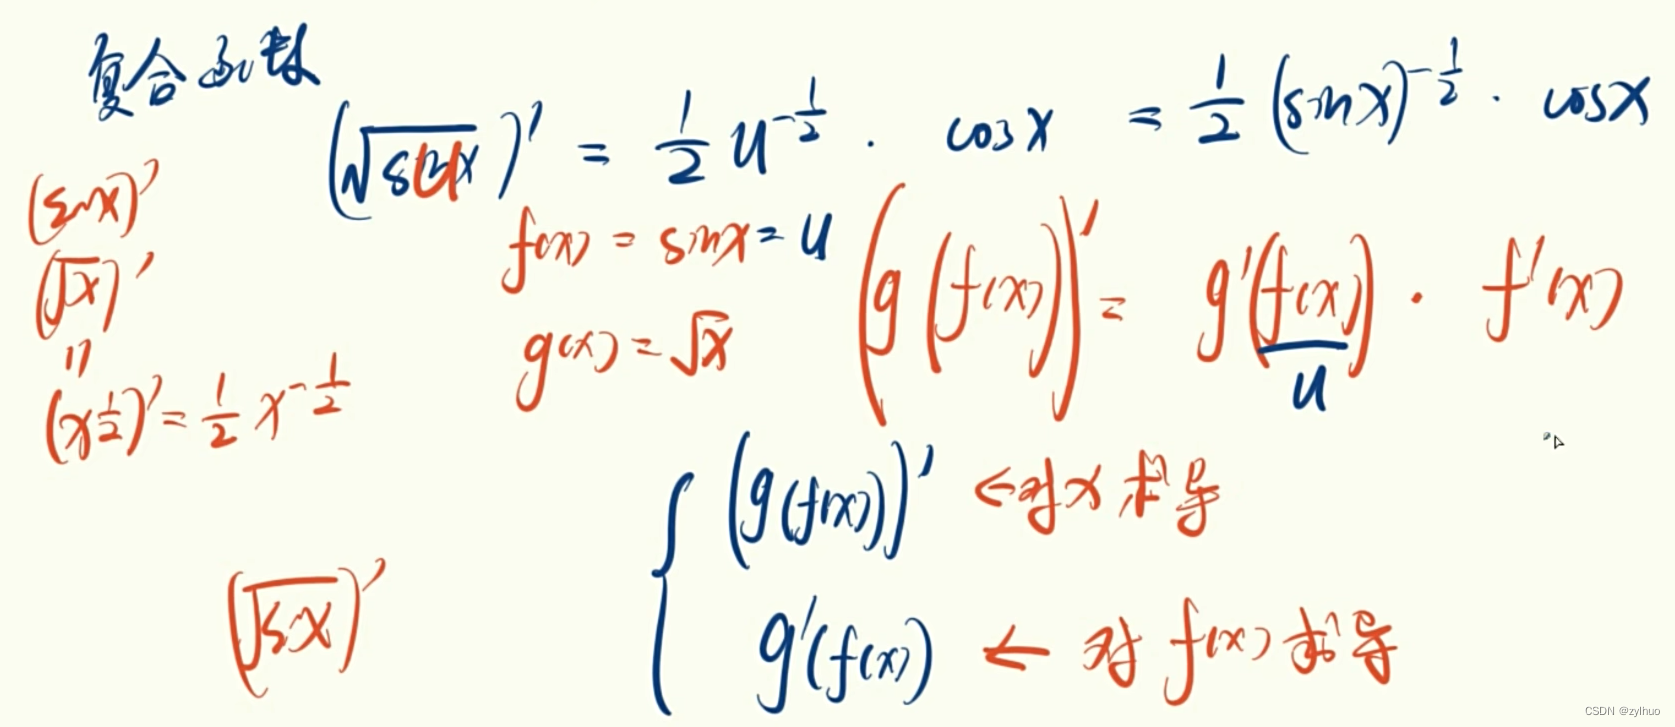 复合函数
(√sinx)' = 1/2 u^(-1/2) · cosx = 1/2 (sinx)^(-1/2) · cosx
u
(sinx)'
(√x)'
||
(x^(1/2))' = 1/2 x^(-1/2)
f(x) = sinx = u
g(x) = √x
(g(f(x)))' = g'(f(x)) · f'(x)
u
(g(f(x)))' ← 对x求导
g'(f(x)) ← 对f(x)求导
(√sinx)'
CSDN @zylhuo